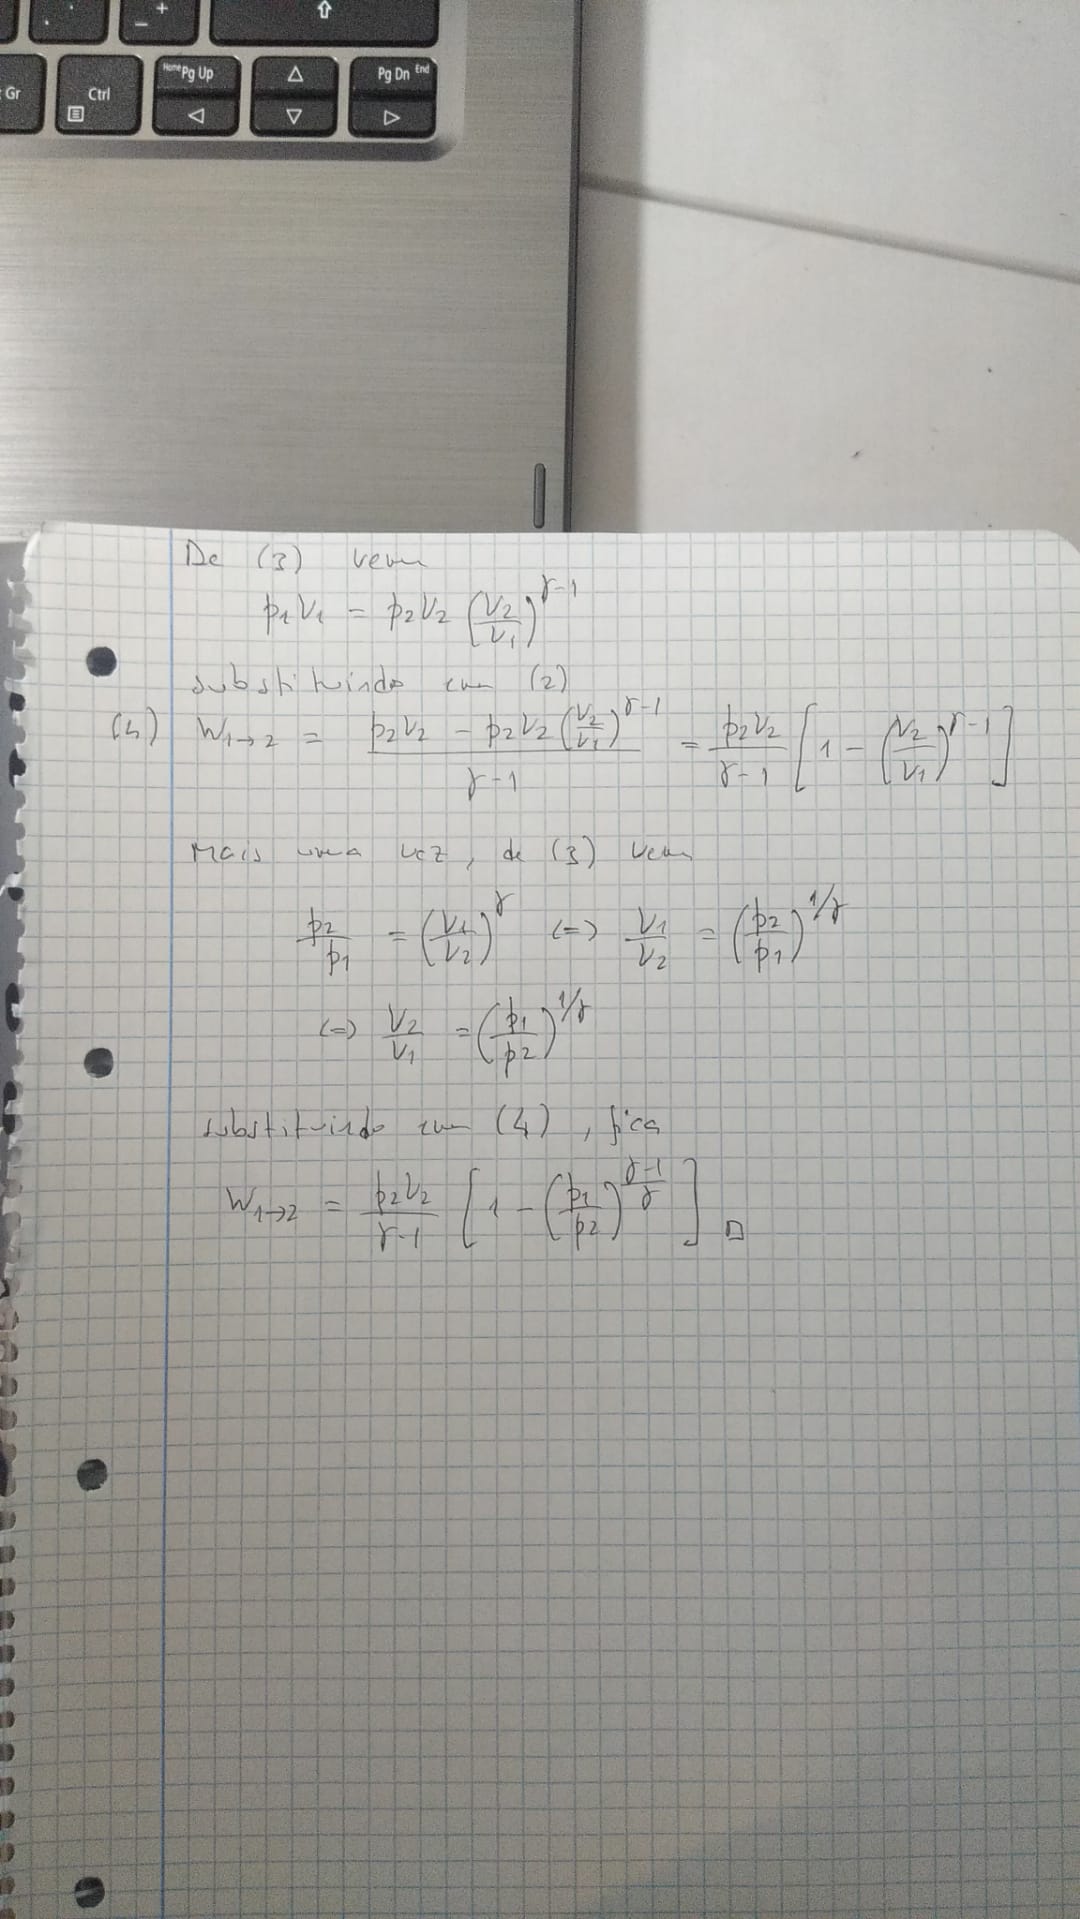 - +
Gr
Ctrl
Home Pg Up
Pg Dn End
De (3) vem
p₁V₁ = p₂V₂ (V₂/V₁)^(γ-1)
substituindo em (2)
(4) W₁→₂ = (p₂V₂ - p₂V₂ (V₂/V₁)^(γ-1))/(γ-1) = p₂V₂/(γ-1) [1 - (V₂/V₁)^(γ-1)]
Mais uma vez, de (3) vem
p₂/p₁ = (V₁/V₂)^γ (=) V₁/V₂ = (p₂/p₁)^(1/γ)
(=) V₂/V₁ = (p₁/p₂)^(1/γ)
substituindo em (4), fica
W₁→₂ = p₂V₂/(γ-1) [1 - (p₁/p₂)^((γ-1)/γ)] □